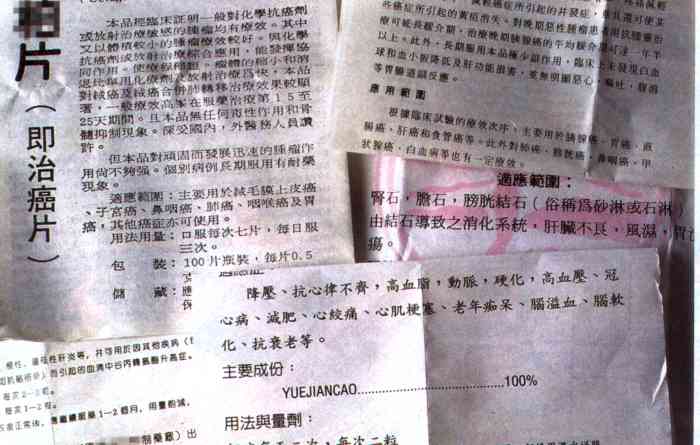 片
（即治癌片）
本品經臨床証明一般對化學抗癌劑
或放射治療敏感的腫瘤均有療效。其中
又以體積較小的腫瘤療效較好。與化學
抗癌劑或放射治療綜合應用，能發揮協
同作用，使療程縮短。瘤體的縮小和消
退比單用化療劑及放射治療爲快，本品
對絨癌及絨癌合併肺轉移治療效果較顯
著，一般療效高峯在服藥治療第15至
25天期間。且本品無任何毒性作用和骨
髓抑制現象。深受國內，外醫務人員讚
許。
但本品對頑固而發展迅速的腫瘤作
用尚不夠强。個別病例長期服用有耐藥
現象。
適應範圍：主要用於絨毛膜上皮癌
、子宮癌、鼻咽癌、肺癌、咽喉癌及胃
癌，其他癌症亦可使用。
用法用量：口服每次七片，每日服
三次。
包 裝：100片瓶裝，每片0.5
儲 藏：應
保
些癌症所引起的黃疸消失。對晚期惡性腫瘤患者
療可能長緩介期，治療晚期胰腺癌的平均緩介期可達一年半
以上。此外，長期服用本品極少副作用，臨床上未發現白血
球和血小板降低及肝功能損害，更無明顯惡心、嘔吐、腹瀉
等胃腸道顯反應。
應用範圍
根據臨床試驗的療效次序，主要用於胰腺癌、胃癌、直
腸癌、肝癌和食管癌等。此外對肺癌、膀胱癌、鼻咽癌、甲
狀腺癌、白血病等也有一定療效。
適應範圍：
腎石，膽石，膀胱結石（俗稱爲砂淋或石淋）
由結石導致之消化系統，肝臟不良，風濕，胃
瘍。
降壓、抗心律不齊，高血脂，動脈，硬化，高血壓、冠
心病、減肥、心絞痛、心肌梗塞、老年痴呆、腦溢血、腦軟
化、抗衰老等。
主要成份：
YUEJIANCAO..............................100%
用法與量劑：
每次二粒
性肝炎等，并可用於因其他疾病
而引起的血清中谷丙轉氨酶升高症。
每次2-3
每次1-2
服藥1-2個月，用量酌減，
出